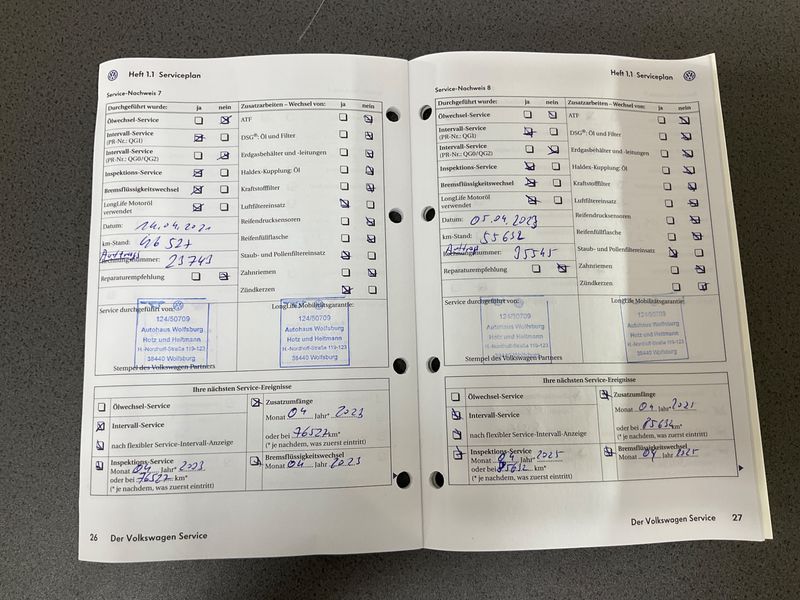 Heft 1.1 Serviceplan
Service-Nachweis 7
Durchgeführt wurde: ja nein
Zusatzarbeiten – Wechsel von: ja nein
Ölwechsel-Service
ATF
Intervall-Service
(PR-Nr.: QG1)
DSG®: Öl und Filter
Intervall-Service
(PR-Nr.: QG0/QG2)
Erdgasbehälter und -leitungen
Inspektions-Service
Haldex-Kupplung: Öl
Bremsflüssigkeitswechsel
Kraftstofffilter
LongLife Motoröl
verwendet
Luftfiltereinsatz
Datum: 14.04.2021
Reifendrucksensoren
km-Stand: 46 527
Reifenfüllflasche
Auftrags
Rechnungsnummer: 23743
Staub- und Pollenfiltereinsatz
Reparaturempfehlung
Zahnriemen
Zündkerzen
Service durchgeführt von:
LongLife Mobilitätsgarantie:
124/50709
Autohaus Wolfsburg
Hotz und Heitmann
H.-Nordhoff-Straße 119-123
38440 Wolfsburg
124/50709
Autohaus Wolfsburg
Hotz und Heitmann
H.-Nordhoff-Straße 119-123
38440 Wolfsburg
Stempel des Volkswagen Partners
Ihre nächsten Service-Ereignisse
Ölwechsel-Service
Intervall-Service
nach flexibler Service-Intervall-Anzeige
Zusatzumfänge
Monat 04 Jahr* 2023
oder bei 76527 km*
(* je nachdem, was zuerst eintritt)
Inspektions-Service
Monat 04 Jahr* 2023
oder bei 76527 km*
(* je nachdem, was zuerst eintritt)
Bremsflüssigkeitswechsel
Monat 04 Jahr 2023
26 Der Volkswagen Service
Heft 1.1 Serviceplan
Service-Nachweis 8
Durchgeführt wurde: ja nein
Zusatzarbeiten – Wechsel von: ja nein
Ölwechsel-Service
ATF
Intervall-Service
(PR-Nr.: QG1)
DSG®: Öl und Filter
Intervall-Service
(PR-Nr.: QG0/QG2)
Erdgasbehälter und -leitungen
Inspektions-Service
Haldex-Kupplung: Öl
Bremsflüssigkeitswechsel
Kraftstofffilter
LongLife Motoröl
verwendet
Luftfiltereinsatz
Datum: 05.04.2023
Reifendrucksensoren
km-Stand: 55632
Reifenfüllflasche
Auftrag
Rechnungsnummer: 35545
Staub- und Pollenfiltereinsatz
Reparaturempfehlung
Zahnriemen
Zündkerzen
Service durchgeführt von:
LongLife Mobilitätsgarantie:
124/50709
Autohaus Wolfsburg
Hotz und Heitmann
H.-Nordhoff-Straße 119-123
38440 Wolfsburg
124/50709
Autohaus Wolfsburg
Hotz und Heitmann
H.-Nordhoff-Straße 119-123
38440 Wolfsburg
Stempel des Volkswagen Partners
Ihre nächsten Service-Ereignisse
Ölwechsel-Service
Intervall-Service
nach flexibler Service-Intervall-Anzeige
Zusatzumfänge
Monat 04 Jahr* 2025
oder bei 85632 km*
(* je nachdem, was zuerst eintritt)
Inspektions-Service
Monat 04 Jahr* 2025
oder bei 85632 km*
(* je nachdem, was zuerst eintritt)
Bremsflüssigkeitswechsel
Monat 04 Jahr 2025
Der Volkswagen Service 27